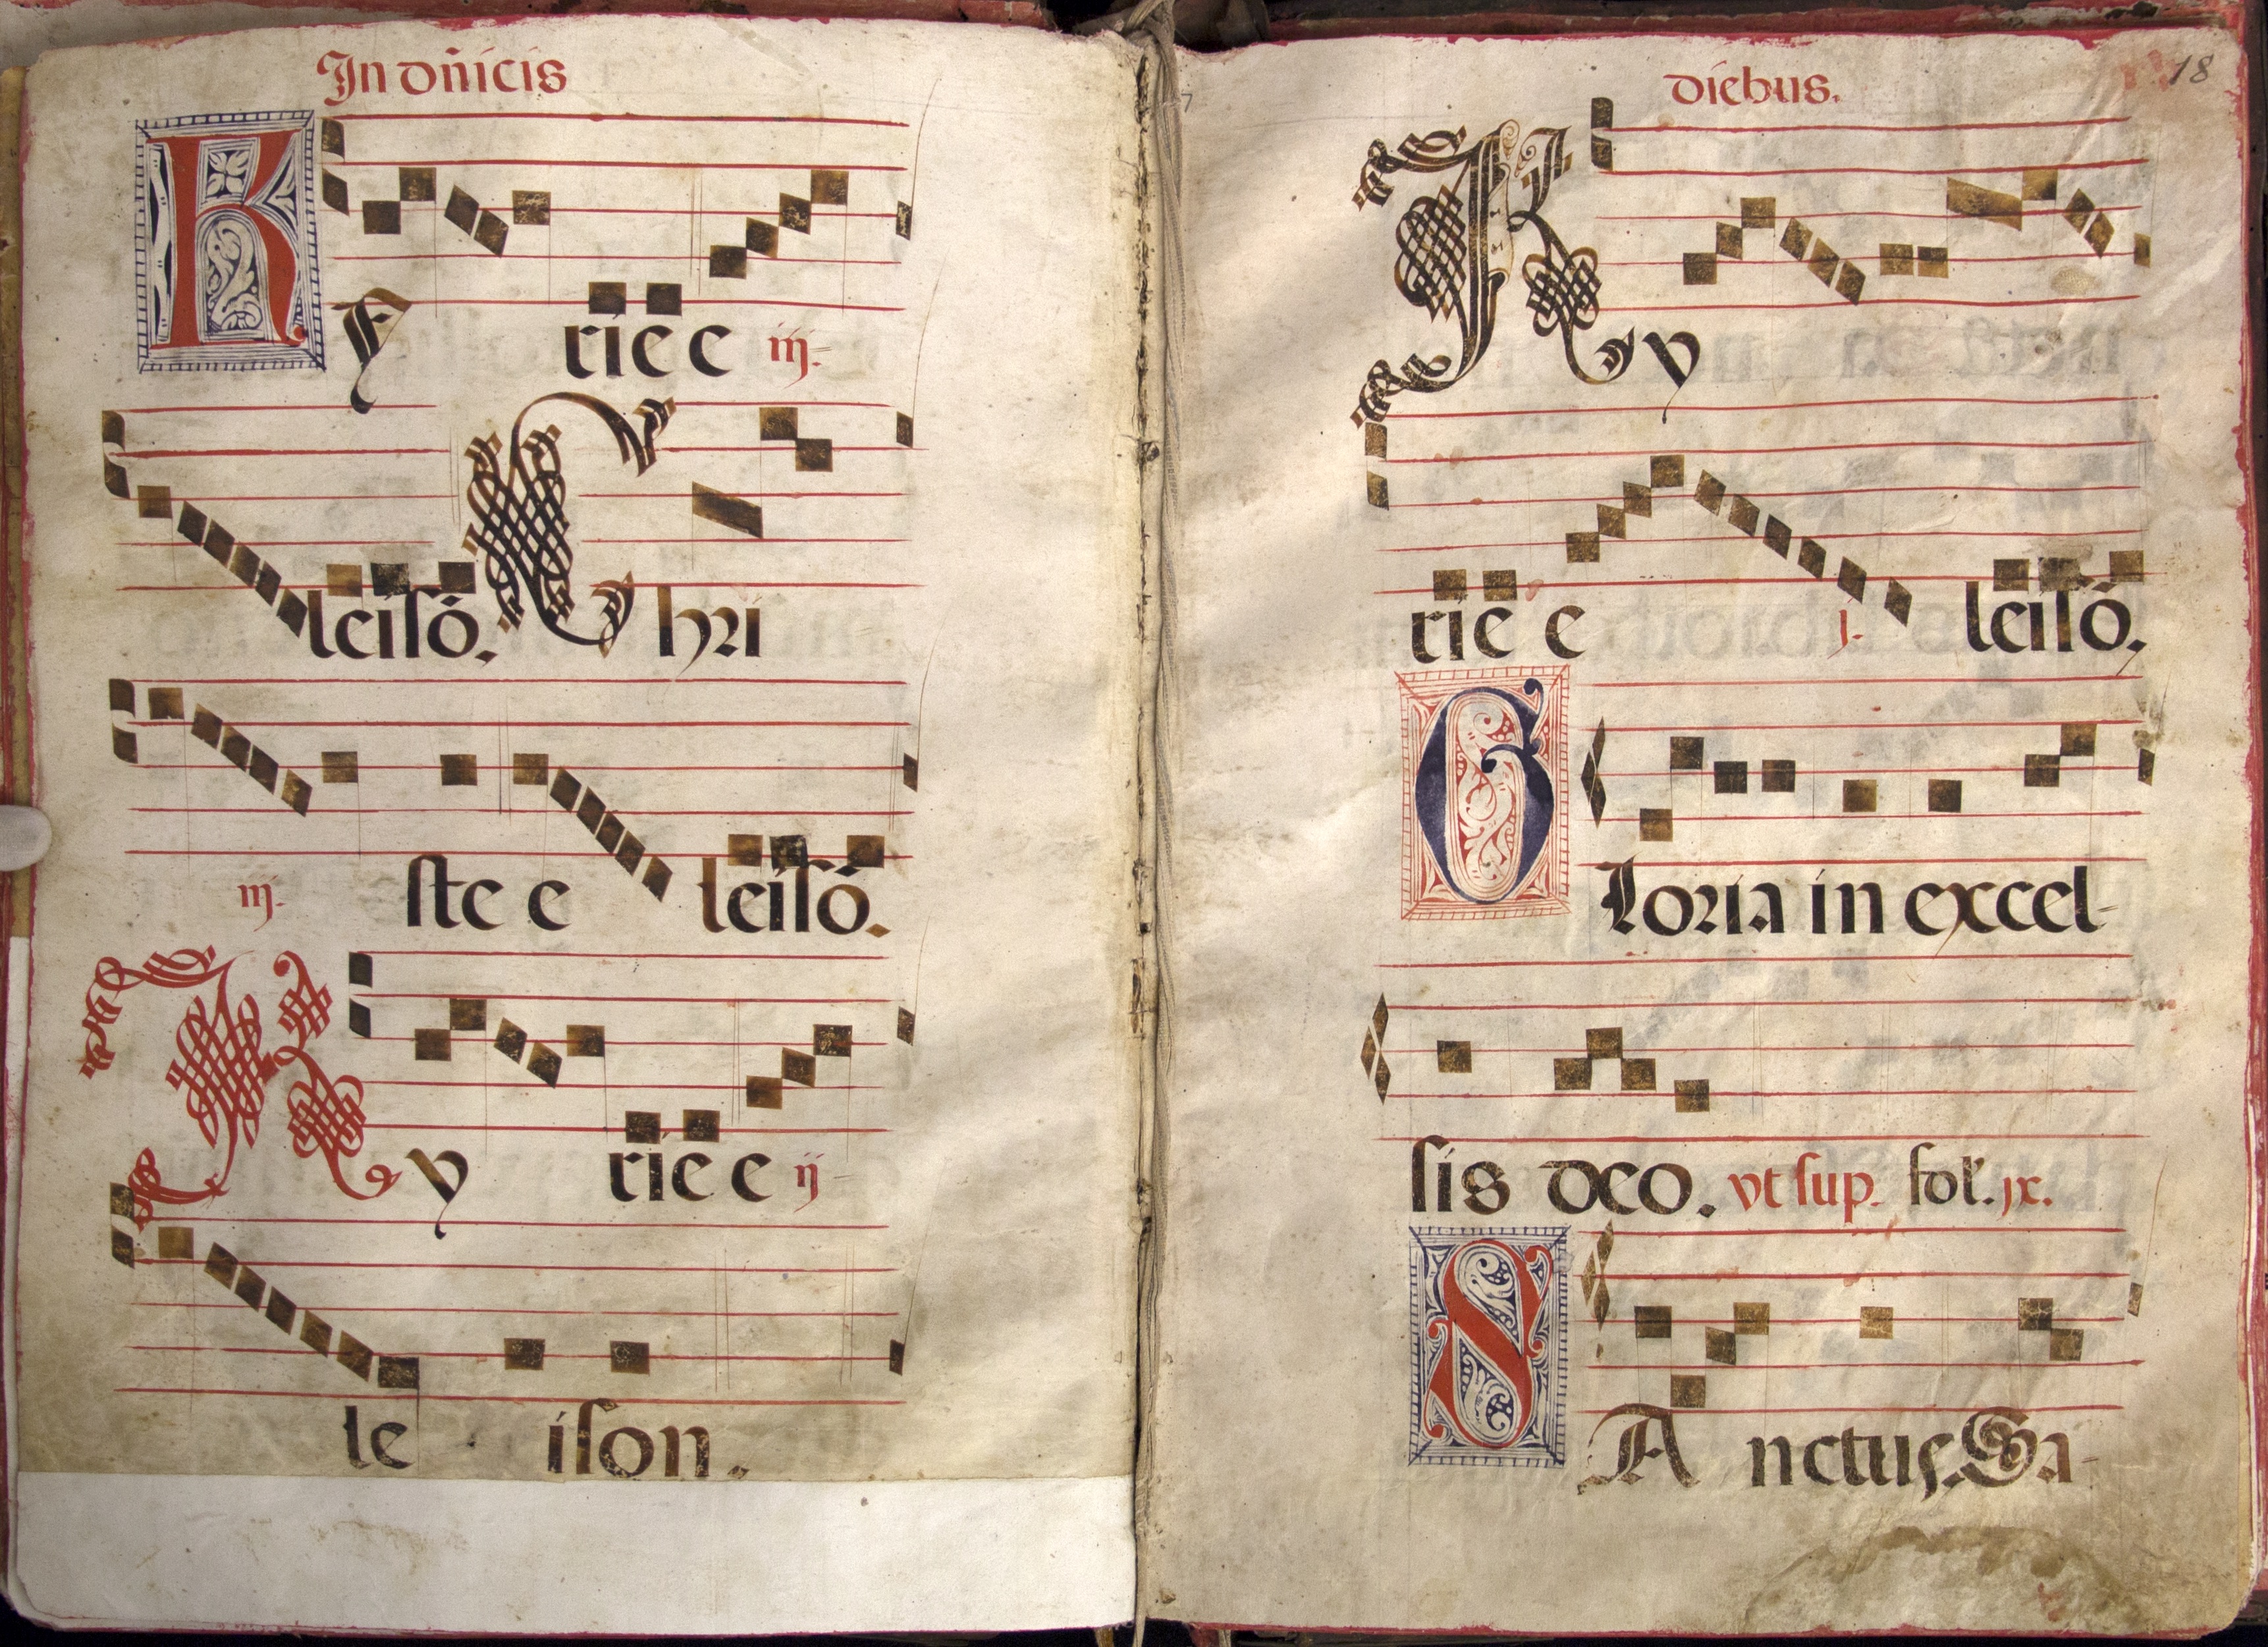 In dn̄icis
KY rie e iij.
leisō. Chri
iij. ste e leisō.
Ky rie e ij
le ison.
diebus. 18
Ky
rie e j. leisō.
Gloria in excel-
sis deo. vt sup. fol. ix.
SA nctus. Sa-